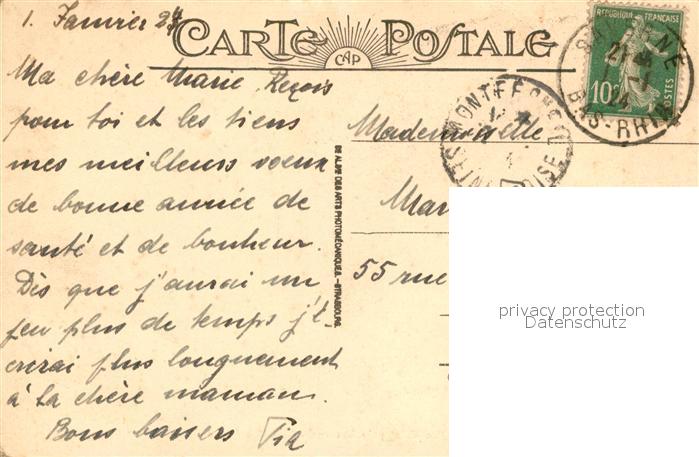 1. Janvier 24
CARTE POSTALE
CAP
RÉPUBLIQUE FRANÇAISE
10c
POSTES
21
24
BAS-RHIN
MONTF
SEINE OISE
Ma chère Marie, Reçois
pour toi et les tiens
mes meilleurs voeux
de bonne année de
santé et de bonheur.
Dès que j'aurai un
peu plus de temps j't'
écrirai plus longuement
à ta chère maman.
Bons baisers
Mademoiselle
Mar
55 rue
CIE ALSACIENNE DES ARTS PHOTOMÉCANIQUES. - STRASBOURG.
privacy protection
Datenschutz